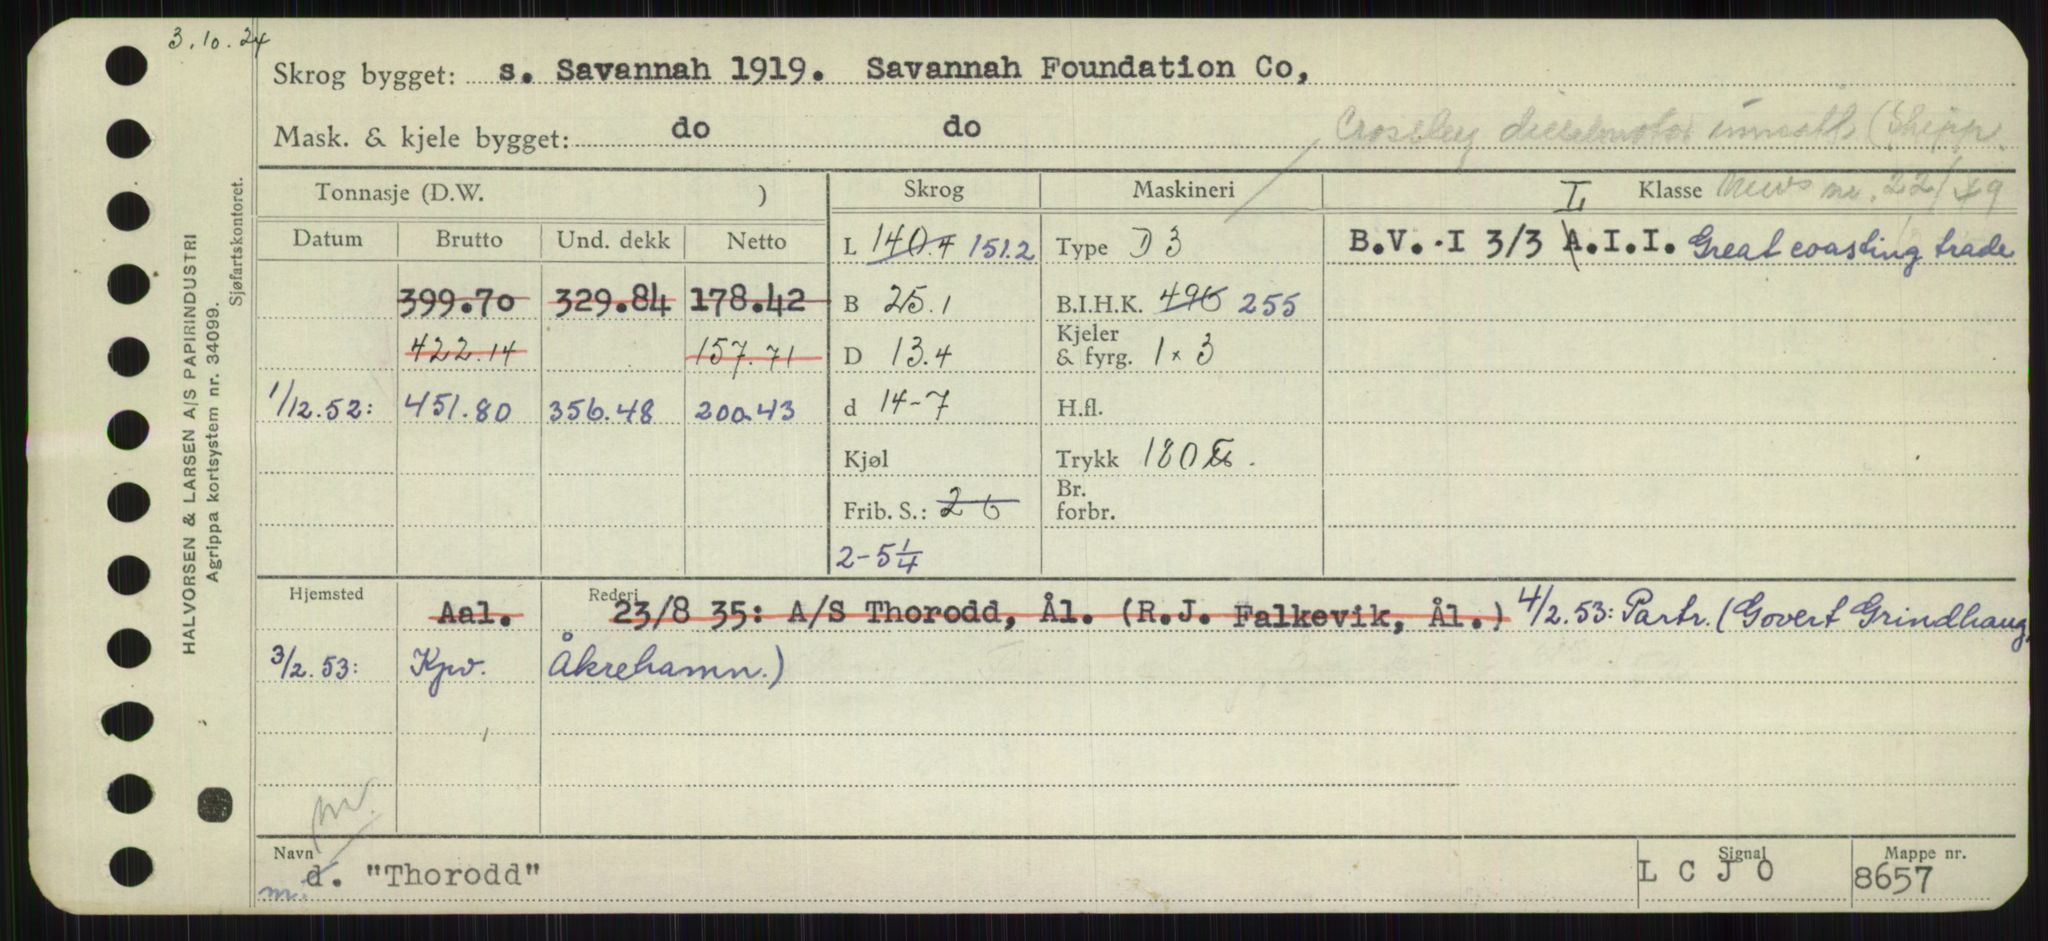 3.10.24
Skrog bygget: s. Savannah 1919. Savannah Foundation Co,
Mask. & kjele bygget: do do Crossley dieselmotor innsatt (Shipp.
News nr. 22/49
Tonnasje (D.W. ) Skrog Maskineri Klasse
Datum Brutto Und. dekk Netto L 140.4 151.2 Type D 3 B.V. I 3/3 A.I.I. Great coasting trade
L
399.70 329.84 178.42 B 25.1 B.I.H.K. 496 255
422.14 157.71 D 13.4 Kjeler & fyrg. 1 x 3
1/12.52: 451.80 356.48 200.43 d 14-7 H.fl.
Kjøl Trykk 180 ℔.
Frib. S.: 2 6 Br. forbr.
2-5 1/4
Hjemsted Rederi
Aal. 23/8 35: A/S Thorodd, Ål. (R.J. Falkevik, Ål.) 4/2.53: Partr. (Govert Grindhaug,
3/2.53: Kpv. Åkrehamn.)
m.
Navn Signal Mappe nr.
m. d. "Thorodd" L C J O 8657
HALVORSEN & LARSEN A/S PAPIRINDUSTRI
Agrippa kortsystem nr. 34099.
Sjøfartskontoret.